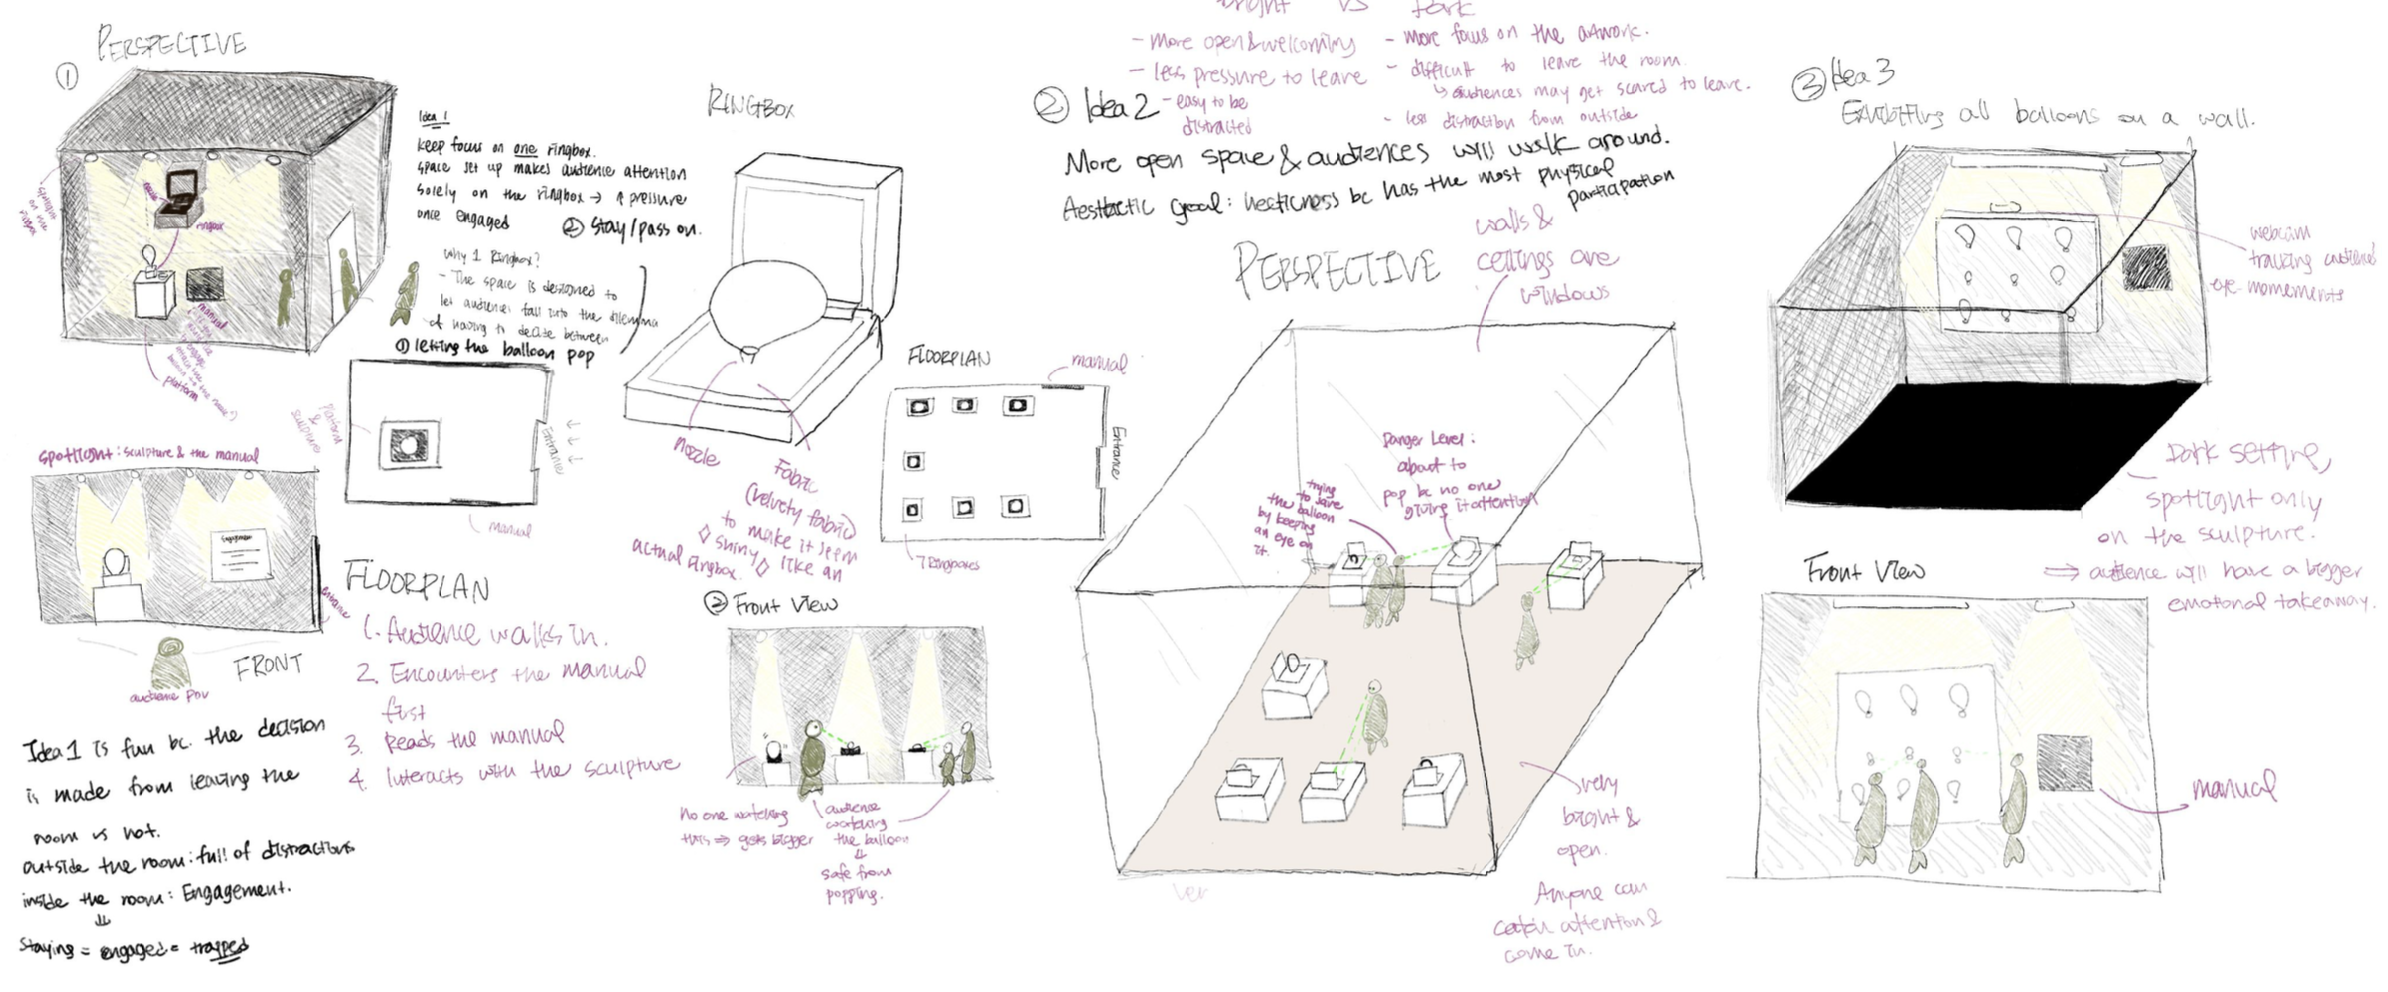 PERSPECTIVE
①
spotlight
on the
ringbox
nozzle
ringbox
manual
platform
Idea 1
keep focus on one ringbox.
space set up makes audience attention
solely on the ringbox → ↑ pressure
once engaged
② Stay/pass on.
Why 1 Ringbox?
- The space is designed to
let audience fall into the dilemma
of having to decide between
① letting the balloon pop
platform
&
sculpture
Entrance
manual
spotlight: sculpture & the manual
Engagement
entrance
FRONT
audience pov
FLOORPLAN
1. Audience walks in.
2. Encounters the manual
first
3. Reads the manual
4. Interacts with the sculpture
Idea 1 is fun bc. the decision
is made from leaving the
room vs not.
outside the room: full of distractions
inside the room: Engagement.
⇓
Staying = engaged = trapped
RINGBOX
nozzle
Fabric
(velvety fabric)
to make it seem
◊ shiny ◊ like an
actual ringbox.
FLOORPLAN
manual
Entrance
7 Ringboxes
② Front View
no one watching
this ⇒ gets bigger
audience
watching
the balloon
⇓
safe from
popping.
Bright vs Dark
- More open & welcoming
- less pressure to leave
- easy to be
distracted
- more focus on the artwork.
- difficult to leave the room.
↳ audiences may get scared to leave.
- less distraction from outside
② Idea 2
More open space & audiences will walk around.
Aesthetic Goal: hecticness bc has the most physical
participation
PERSPECTIVE
walls &
ceilings are
windows
Danger Level:
about to
pop bc no one
giving it attention
trying
to save
the balloon
by keeping
an eye on
it.
very
bright &
open.
Anyone can
catch attention &
come in.
③ Idea 3
Exhibiting all balloons on a wall.
webcam
tracking audiences'
eye movements
Dark setting,
spotlight only
on the sculpture.
⇒ audience will have a bigger
emotional takeaway.
Front View
manual